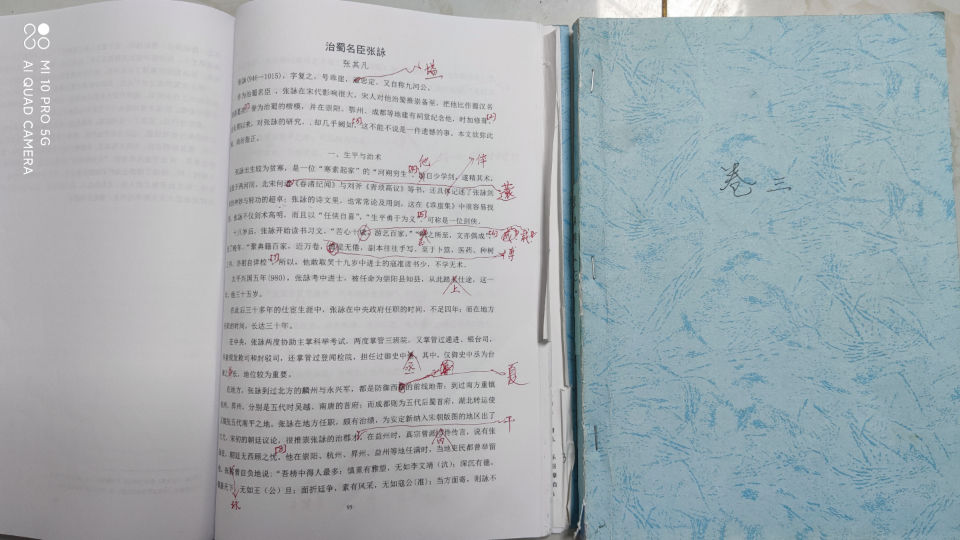 MI 10 PRO 5G
AI QUAD CAMERA
治蜀名臣张詠
张其凡
张詠(946—1015)，字复之，号乖崖，忠定，又自称九河公。
作为治蜀名臣，张詠在宋代影响很大，宋人对他治蜀推崇备至，把他比作蜀汉名
誉为治蜀的楷模，并在崇阳、鄂州、成都等地建有祠堂纪念他，时加修葺
以来，对张詠的研究，却几乎阙如，这不能不说是一件遗憾的事。本文欲弥此
一、生平与治术
张詠出生较为贫寒，是一位“寒素起家”的“河朔穷生”，自少学剑，遂精其术，
于两河间，北宋何《春渚纪闻》与刘斧《青琐高议》等书，还具记述了张詠剑
的神妙与轻功的超卓；张詠的诗文里，也常常论及用剑，这在《乖崖集》中很容易找
张詠不仅剑术高明，而且以“任侠自喜”，“生平勇于为义”，可称是一位剑侠。
十八岁后，张詠开始读书习文，“苦心十，游艺百家，”之所至，文亦偶成
了晚年，“聚典籍百家，近万卷，无倦，副本往往手写，至于卜筮、医药、种树
所以，他敢取笑十九岁中进士的寇准读书少，不学无术。
太平兴国五年(980)，张詠考中进士，被任命为崇阳县知县，从此踏仕途，这一
他三十五岁。
在此后三十多年的仕宦生涯中，张詠在中央政府任职的时间，不足四年；而在地方
的时间，长达三十年。
在中央，张詠两度协助主掌科举考试，两度掌管三班院，又掌管过通进、银台司，
和封驳司，还掌管过登闻检院，担任过御史中，其中，仅御史中丞为台
长，地位较为重要。
在地方，张詠到过北方的麟州与永兴军，都是防御西的前线地带；到过南方重镇
杭州、昇州，分别是五代时吴越、南唐的首府；而成都则为五代后蜀首府，湖北转运使
五代南平之地，张詠在地方任职，颇有治绩，为安定新纳入宋朝版图的地区出了
宋初的朝廷议论，很推崇张詠的治郡，在益州时，真宗曾派传言，说有张
朝廷无西顾之忧，他在崇阳、杭州、昇州、益州等地任满时，当地吏民都曾举留
曾自负地说：“吾榜中得人最多；慎重有雅望，无如李文靖（沆）；深沉有德，
无如王（公）旦；面折廷争，素有风采，无如寇公(准)；当方面寄，则詠不
95
他
伴
蘧
上
丞
夏
干
咏
卷三